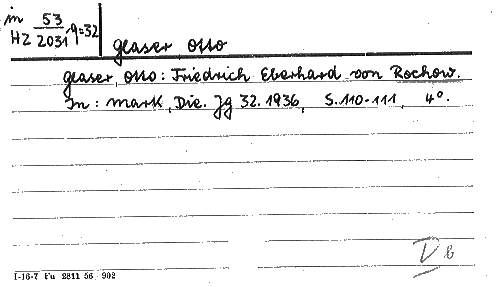 in 53
HZ 2031, 9=32
Glaser, Otto
Glaser, Otto: Friedrich Eberhard von Rochow.
In: Mark, Die. Jg 32. 1936, S. 110-111, 4°.
I-16-7 Fu 2811 56 902